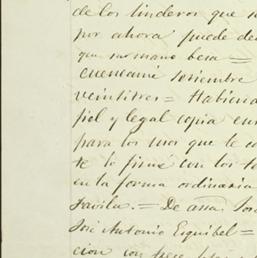 de los linderos que s
por ahora puede de
que su mano besa =
Cuencamé noviembre
veintitres = Habiend
fiel y legal copia
para los usos que le c
te lo firmé con los t
en la forma ordinaria
Favila. = De assa. Jos
José Antonio Esquibel =
cion con